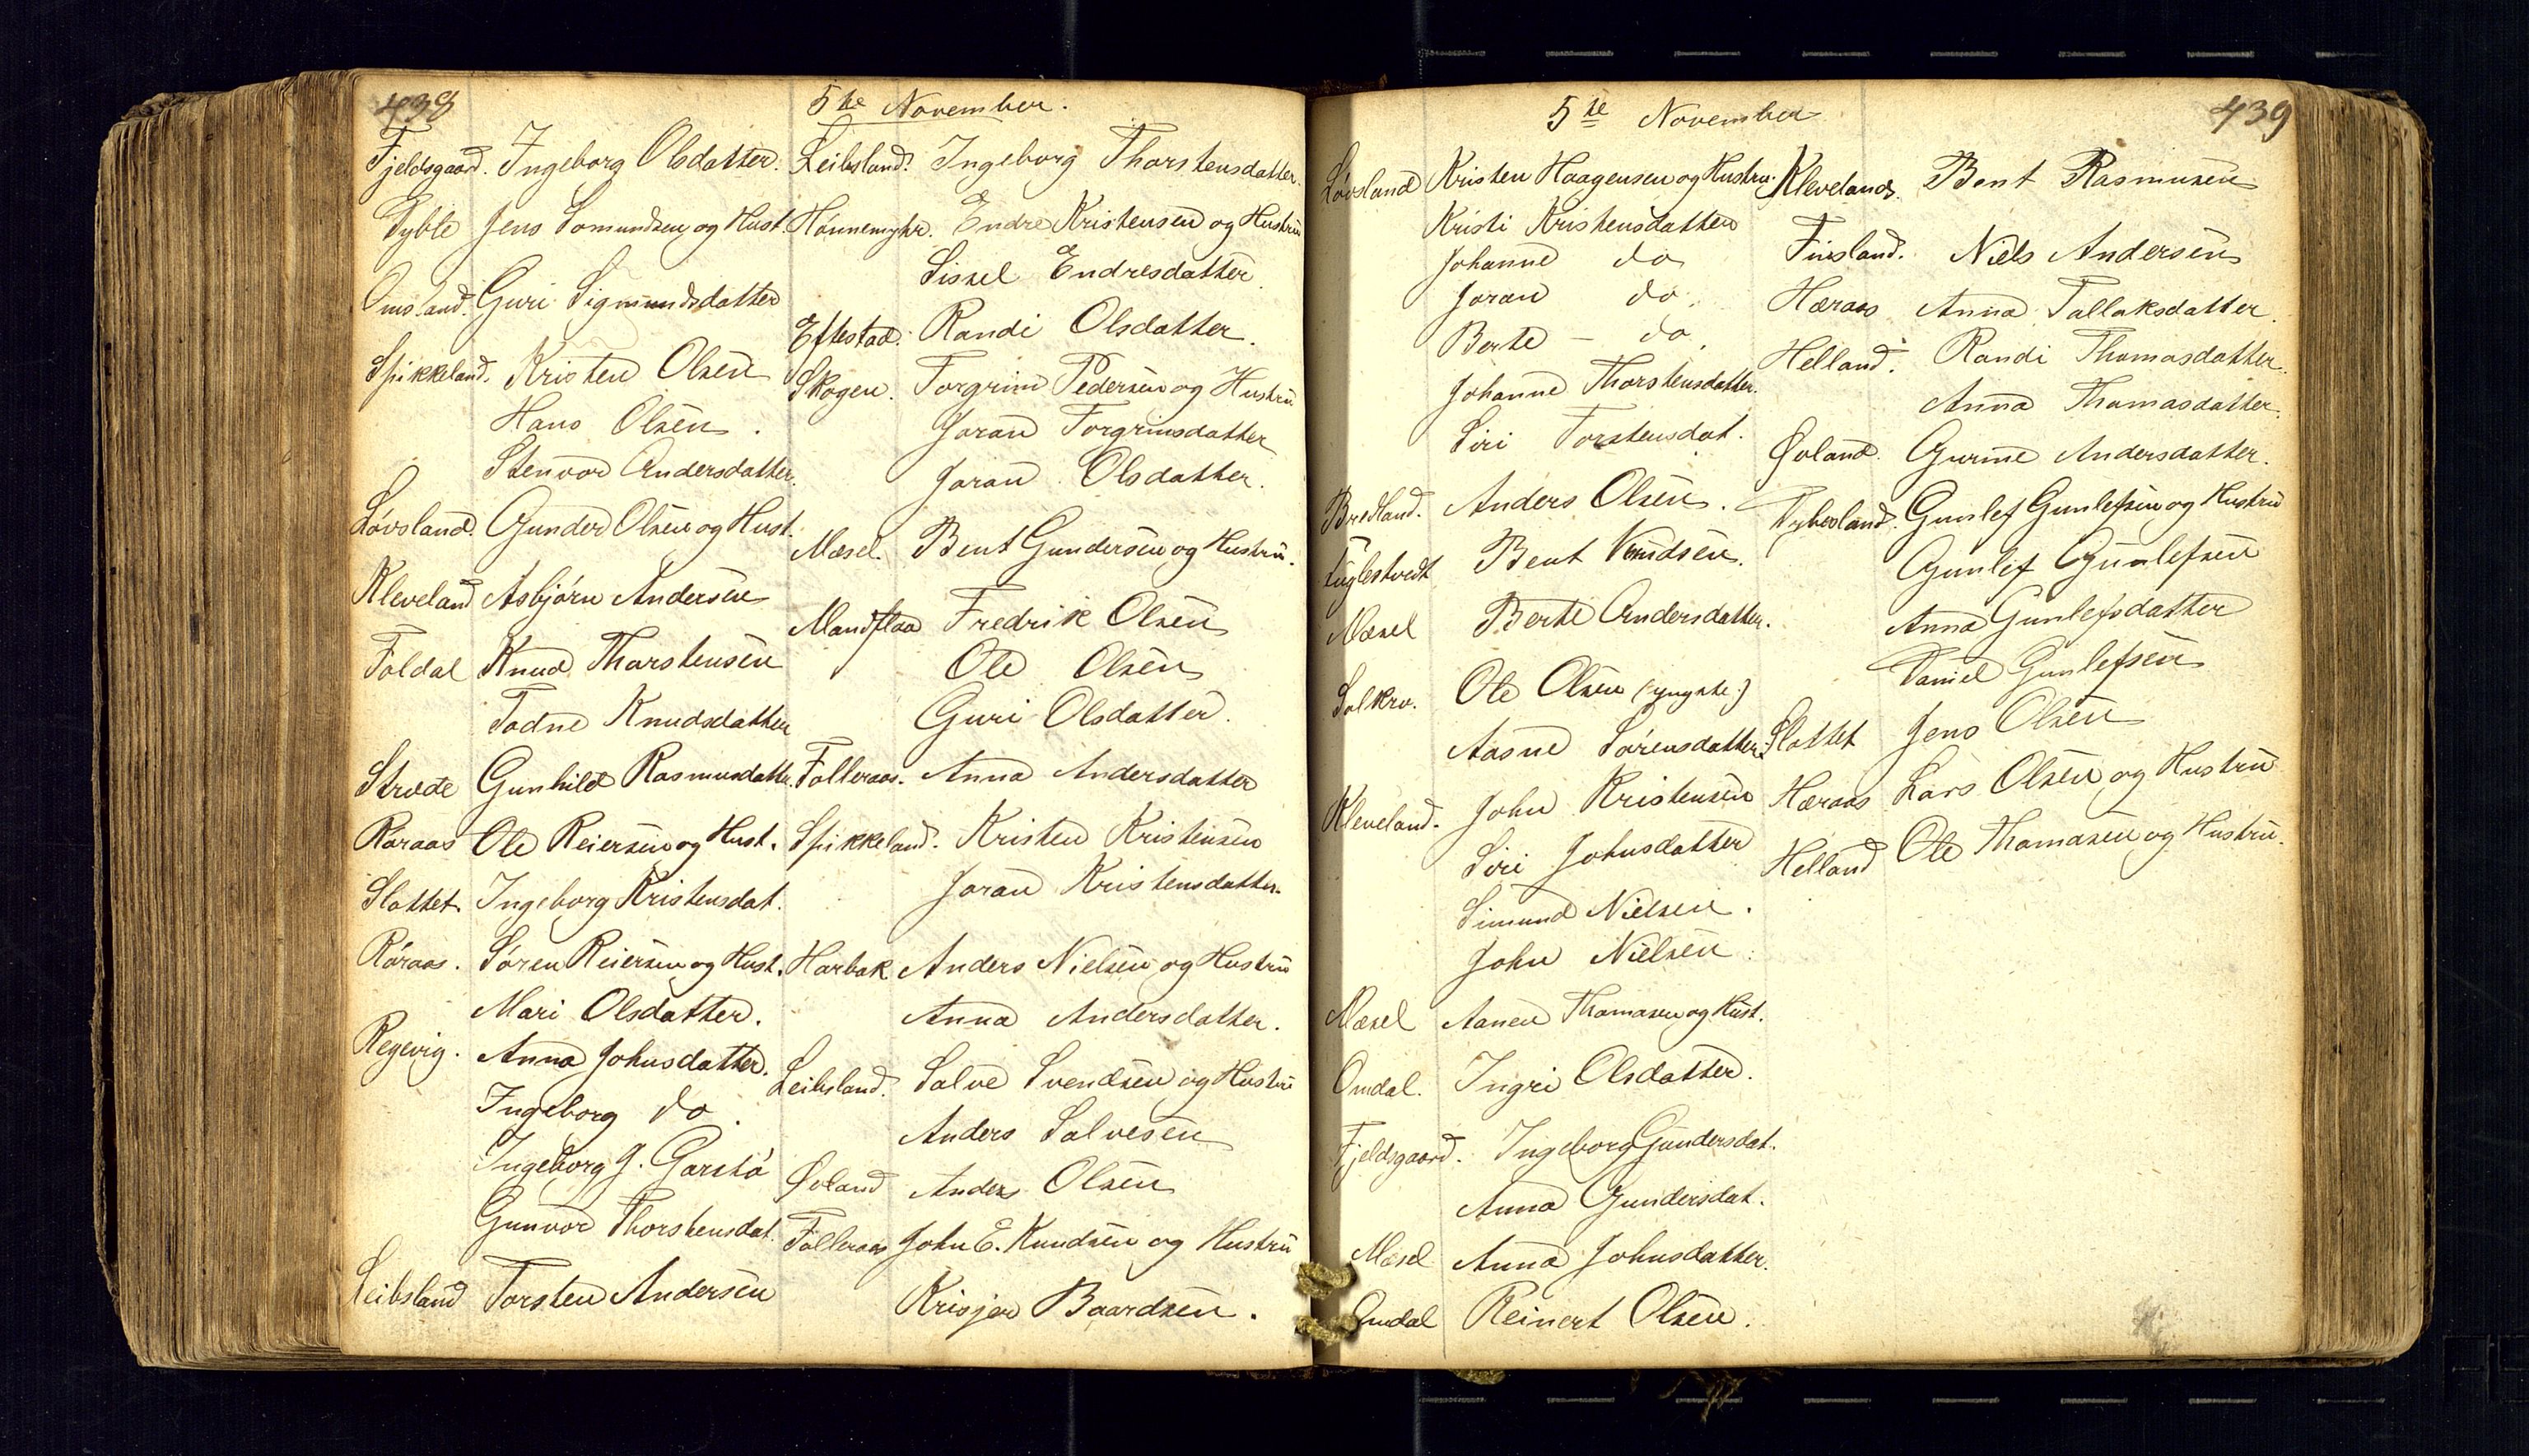 438
5te November.
Fjeldsgaard. Ingeborg Olsdatter.
Tyble Jens Somundsen og Hust.
Omsland. Guri Sigmundsdatter
Spikkeland. Kristen Olsen
Hans Olsen.
Stenvor Andersdatter.
Lóvsland. Gunder Olsen og Hust.
Kleveland Asbjórn Andersen
Foldal Knud Thorstensen
Todne Knudsdatter
Stræde Gunhild Rasmusdatter.
Róraas Ole Reiersen og Hust.
Slottet. Ingeborg Kristensdat.
Róraas. Sóren Reiersen og Hust.
Mari Olsdatter.
Regevig. Anna Johnsdatter.
Ingeborg do.
Ingeborg J. Garstó
Gunvor Thorstensdat.
Leibsland Torsten Andersen
Leibsland. Ingeborg Thorstensdatter.
Hónnemyhr. Endre Kristensen og Hustru
Sissel Endresdatter.
Eftestad. Randi Olsdatter.
Skogen. Torgrim Pedersen og Hustru
Joran Torgrimsdatter
Joran Olsdatter.
Mæsel. Bent Gundersen og Hustru.
Mandflaa Fredrik Olsen
Ole Olsen
Guri Olsdatter.
Folleraas. Anna Andersdatter
Spikkeland. Kristen Kristensen
Joran Kristensdatter.
Harbak Anders Nielsen og Hustru
Anna Andersdatter.
Leibsland. Salve Svendsen og Hustru
Anders Salvesen
Øvland Anders Olsen
Folleraas John E. Knudsen og Hustru
Krisjer Baardsen.
5te November
439
Lóvsland Kristen Haagensen og Hustru.
Kristi Kristensdatter
Johanne do
Joran do.
Berte – do.
Johanne Thorstensdatter.
Siri Torstensdat.
Bredland. Anders Olsen.
Fuglestvedt Bent Knudsen.
Mæsel Berte Andersdatter.
Solkro. Ole Olsen (yngste.)
Aasne Sórensdatter.
Kleveland. John Kristensen
Siri Johnsdatter
Simund Nielsen.
John Nielsen.
Mæsel Aanen Thomasen og Hust.
Omdal. Ingri Olsdatter.
Fjeldsgaard. Ingeborg Gundersdat.
Anna Gundersdat.
Mæsel Anna Johnsdatter.
Omdal Reinert Olsen.
Kleveland. Bent Rasmusen
Finsland. Niels Andersen
Hæraas Anna Tallaksdatter.
Helland. Randi Thomasdatter.
Anna Thomasdatter.
Øvland. Gurine Andersdatter.
Dybesland. Gunlef Gunlefsen og Hustru
Gunlef Gunlefsen
Anna Gunlefsdatter
Daniel Gunlefsen
Slottet Jens Olsen
Hæraas Lars Olsen og Hustru
Helland Ole Thomasen og Hustru.